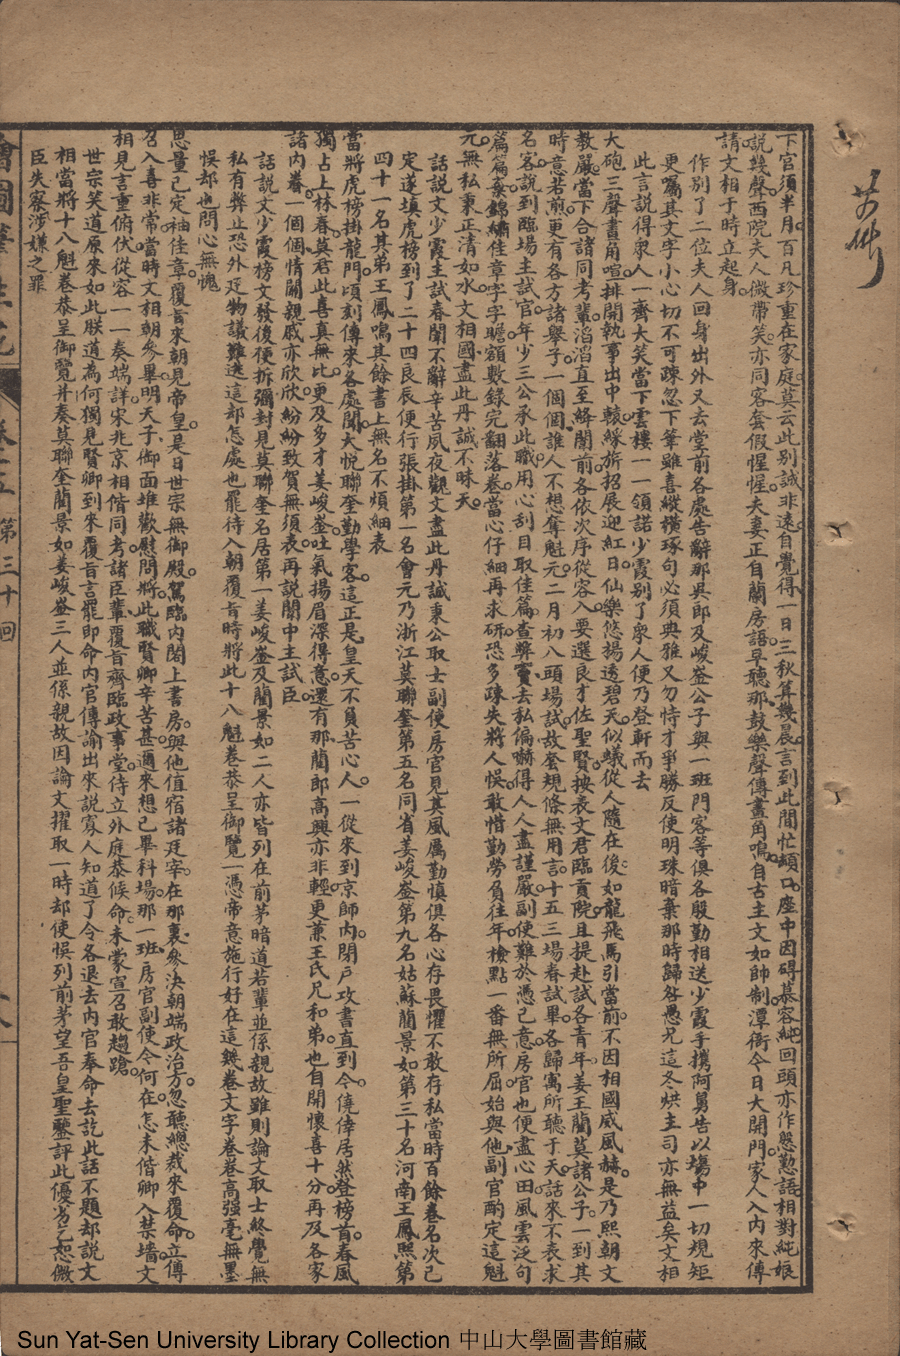 下官須半月。百凡珍重在家庭。莫云此別誠非遠。自覺得一日三秋算幾晨。言到此間忙頓口。座中因碍慕容純。回頭亦作慇懃語。相對純娘
說幾聲。西院夫人微帶笑。亦同客套假惺惺。夫妻正自蘭房語。早聽那鼓樂聲傳畫角鳴。自古主文如帥制。潭衙今日大開門。家人入內來傳
請。文相于時立起身。
作別了二位夫人回身出外又去堂前各處告辭那吳郎及峻峚公子與一班門客等俱各殷勤相送少霞手攜阿舅告以塲中一切規矩
更囑其文字小心切不可疎忽下筆雖喜縱橫琢句必須典雅又勿恃才爭勝反使明珠暗棄那時歸咎愚兄這冬烘主司亦無益矣文相
此言說得衆人一齊大笑當下雲樓一一領諾少霞別了衆人便乃登軒而去
大砲三聲畫角喧。排開執事出中轅。綵旂招展迎紅日。仙樂悠揚透碧天。似蟻從人隨在後。如龍飛馬引當前。不因相國威風赫。是乃熙朝文
教嚴。當下合諸同考輩。滔滔直至絳闈前。各依次序從容入。要選良才佐聖賢。按表文君臨貢院。且提赴試各青年。姜王蘭莫諸公子。一到其
時意若煎。更有各方諸舉子。一個個誰人不想奪魁元。二月初八頭場試。故套規條無用言。十五三場春試畢。各歸寓所聽于天。話來不表求
名客。說到臨場主試官。年少三公承此職。用心刮目取佳篇。查弊竇去私偏。嚇得人人盡謹嚴。副使難於憑己意。房官也便盡心田。風雲泛句
篇篇棄。錦繡佳章字字瞻。額數錄完翻落卷。當心仔細再求研。恐多疎失將人悞。敢惜勤勞負往年。檢點一番無所屈。始與他副官酌定這魁
元。無私秉正清如水。文相國盡此丹誠不昧天。
話說文少霞主試春闈不辭辛苦夙夜觀文盡此丹誠秉公取士副使房官見其風厲勤慎俱各心存畏懼不敢存私當時百餘卷名次已
定遂填虎榜到了二十四良辰便行張掛第一名會元乃浙江莫聯奎第五名同省姜峻峚第九名姑蘇蘭景如第三十名河南王鳳熙第
四十一名其弟王鳳鳴其餘書上無名不煩細表
當將虎榜掛龍門。頃刻傳來各處聞。大悅聯奎勤學客。這正是皇天不負苦心人。一從來到京師內。閉戶攻書直到今。僥倖居然登榜首。春風
獨占上林春。莫君此喜真無比。更及多才姜峻峚。吐氣揚眉深得意。還有那蘭郎高興亦非輕。更兼王氏兄和弟。也自開懷喜十分。再及各家
諸內眷。一個個情關親戚亦欣欣。紛紛致賀無須表。再說闈中主試臣。
話說文少霞榜文發後便拆彌封見莫聯奎名居第一姜峻峚及蘭景如二人亦皆列在前茅暗道若輩並係親故雖則論文取士終覺無
私有弊止恐外廷物議難逃這却怎處也罷待入朝覆旨時將此十八魁卷恭呈御覽一憑帝意施行好在這幾卷文字卷卷高强毫無墨
悞却也問心無愧
思量已定袖佳章。覆旨來朝見帝皇。是日世宗無御殿。駕臨內閣上書房。與他值宿諸廷宰。在那裏叅決朝端政治方。忽聽總裁來覆命。立傳
召入喜非常。當時文相朝叅畢。明天子御面堆歡慰問將。此職賢卿辛苦甚。邇來想已畢科場。那一班房官副使今何在。怎未偕卿入禁墻。文
相見言重俯伏。從容一一奏端詳。宋兆京相偕同考。諸臣輩覆旨齊臨政事堂。侍立外庭恭候命。未蒙宣召敢趨蹌。
世宗笑道原來如此朕道為何獨見賢卿到來覆旨言罷即命內官傳諭出來說寡人知道了今各退去內官奉命去訖此話不題却說文
相當將十八魁卷恭呈御覽并奏莫聯奎蘭景如姜峻峚三人並係親故因論文擢取一時却使悞列前茅望吾皇聖鑒評此優劣乞恕微
臣失察涉嫌之罪
繪圖筆生花
卷之五 第三十回
八
Sun Yat-Sen University Library Collection 中山大學圖書館藏